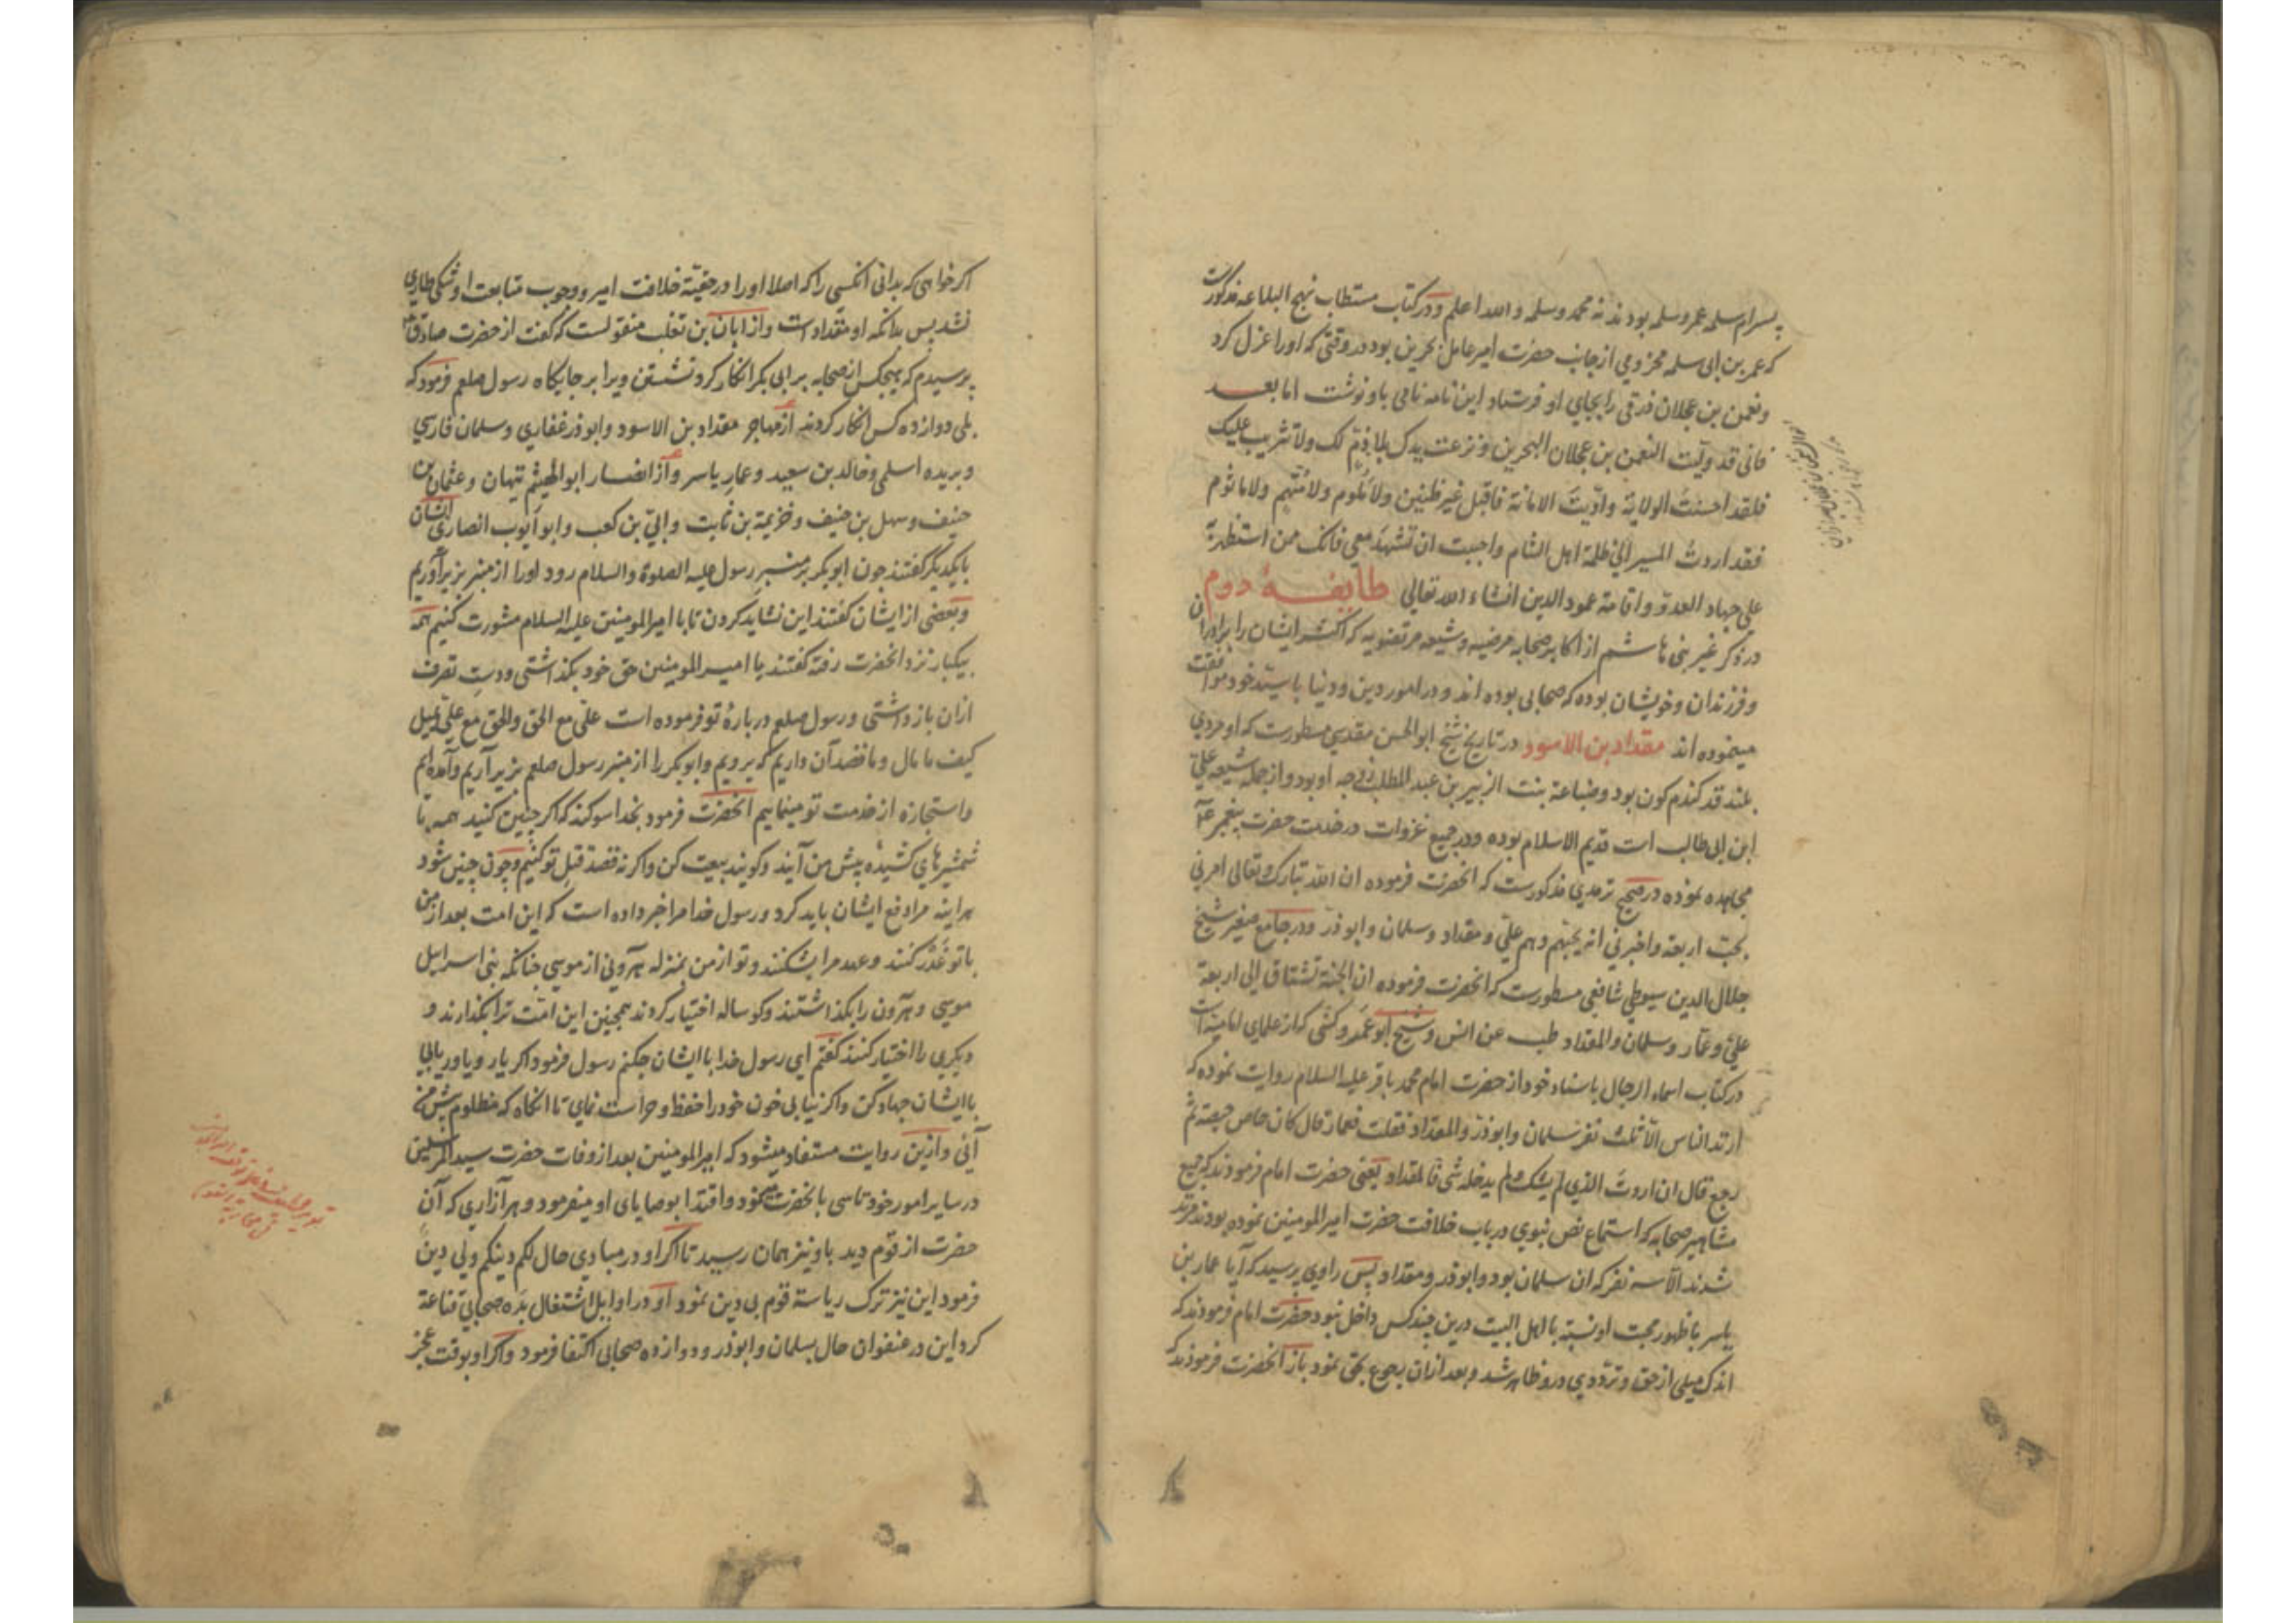 پسرام سلمه عمر و سلمه بودند نه محمد و سلمه والله اعلم و در کتاب مستطاب نهج البلاغه مذکورست
که عمر بن ابی سلمه مخزومی از جانب حضرت امیر عامل بحرین بود در وقتی که او را عزل کرد
و نعمن بن عجلان زرقی را بجای او فرستاد این نامه نامی باو نوشت اما بعد
فانی قد ولیت النعمن بن عجلان البحرین و نزعت یدک بلا ذم لک ولا تثریب علیک
فلقد احسنت الولایة وادیت الامانة فاقبل غیر ظنین ولا ملوم ولا متهم ولا ماثوم
فقد اردت المسیر الی ظلمة اهل الشام واحببت ان تشهد معی فانک ممن استظهر به
علی جهاد العدو واقامة عمود الدین انشاء الله تعالی طایفهٔ دوم
در ذکر غیر بنی هاشم از اکابر صحابه مرضیه و شیعه مرتضویه که اکثر ایشان را برادران
و فرزندان و خویشان بوده که صحابی بوده اند و در امور دین و دنیا با سید خود موافقت
مینموده اند مقداد بن الاسود در تاریخ شیخ ابو الحسن مقدسی مسطورست که او مردی
بلند قد کندم کون بود و ضباعة بنت الزبیر بن عبد المطلب زوجه او بود و از جمله شیعه علی
ابن ابی طالب است قدیم الاسلام بوده و در جمیع غزوات در خدمت حضرت پیغمبر
مجاهده نموده در صحیح ترمدی مذکورست که انحضرت فرموده ان الله تبارک وتعالی امرنی
بحب اربعة واخبرنی انه یحبهم وهم علی و مقداد و سلمان و ابوذر و در جامع صغیر شیخ
جلال الدین سیوطی شافعی مسطورست که انحضرت فرموده ان الجنة تشتاق الی اربعة
علی و عمار و سلمان والمقداد طب عن انس و شیخ ابو عمرو کشی که از علمای امامیه است
در کتاب اسماء الرجال باسناد خود از حضرت امام محمد باقر علیه السلام روایت نموده که
ارتد الناس الا ثلث نفر سلمان و ابوذر والمقداد فقلت فعمار قال کان حاص حیصة ثم
رجع قال ان اردت الذی لم یشک ولم یدخله شی فالمقداد یعنی حضرت امام فرمودند که جمیع
مشاهیر صحابه که استماع نص نبوی در باب خلافت حضرت امیر المومنین نموده بودند مرتد
شدند الا سه نفر که ان سلمان بود و ابوذر و مقداد پس راوی پرسید که آیا عمار بن
یاسر با ظهور محبت او نسبة با اهل البیت درین چند کس داخل نبود حضرت امام فرمودند که
اندک میلی از حق و ترددی درو ظاهر شد و بعد ازان رجوع بحق نمود باز انحضرت فرمودند که
اکر خواهی که بدانی انکسی را که اصلا او را در حقیة خلافت امیر و وجوب متابعت او شکی طاری
نشد پس بدانکه او مقداد است و از ابان بن تغلب منقولست که کفت از حضرت صادق
پرسیدم که هیچکس از صحابه بر ابی بکر انکار کرد و نشستن ویرا بر جایکاه رسول صلعم فرمود که
بلی دوازده کس انکار کردند از مهاجر مقداد بن الاسود و ابوذر غفاری و سلمان فارسی
و بریده اسلمی و خالد بن سعید و عمار یاسر و از انصار ابو الهیثم تیهان و عثمان بن
حنیف و سهل بن حنیف و خزیمة بن ثابت و ابی بن کعب و ابو ایوب انصاری ایشان
با یکدیکر کفتند چون ابو بکر بر منبر رسول علیه الصلوة والسلام رود او را از منبر بزیر آوریم
و بعضی از ایشان کفتند این نشاید کردن تا با امیر المومنین علیه السلام مشورت کنیم همه
بیکبار نزد انحضرت رفته کفتند یا امیر المومنین حق خود بکذاشتی و دست تصرف
ازان باز داشتی و رسول صلعم در بارهٔ تو فرموده است علی مع الحق والحق مع علی یمیل
کیف ما مال و ما قصد آن داریم که برویم و ابو بکر را از منبر رسول صلعم بزیر آریم و آمده ایم
و استجازه از خدمت تو مینماییم انحضرت فرمود بخدا سوکند که اکر چنین کنید همه با
شمشیرهای کشیده پیش من آیند و کویند بیعت کن و اکر نه قصد قتل تو کنیم و چون چنین شود
هراینه مرا دفع ایشان باید کرد و رسول خدا مرا خبر داده است که این امت بعد از من
با تو غدر کنند و عهد مرا بشکنند و تو از من بمنزله هرونی از موسی چنانکه بنی اسراییل
موسی و هرون را بکذاشتند و کوساله اختیار کردند همچنین این امت ترا بکذارند و
دیکری را اختیار کنند کفتم ای رسول خدا با ایشان چکنم رسول فرمود اکر یار و یاور یابی
با ایشان جهاد کن و اکر نیابی خون خود را حفظ و حراست نمای تا انکاه که مظلوم پیش من
آئی و ازین روایت مستفاد میشود که امیر المومنین بعد از وفات حضرت سید المرسلین
در سایر امور خود تاسی بانحضرت مینمود و اقتدا بوصایای او میفرمود و هر آزاری که آن
حضرت از قوم دید باو نیز همان رسید تا اکر او در مبادی حال لکم دینکم ولی دین
فرمود این نیز ترک ریاسة قوم بی دین نمود او در اوایل اشتغال بده صحابی قناعة
کرد این در عنفوان حال بسلمان و ابوذر و دوازده صحابی اکتفا فرمود و اکر او بوقت عجز